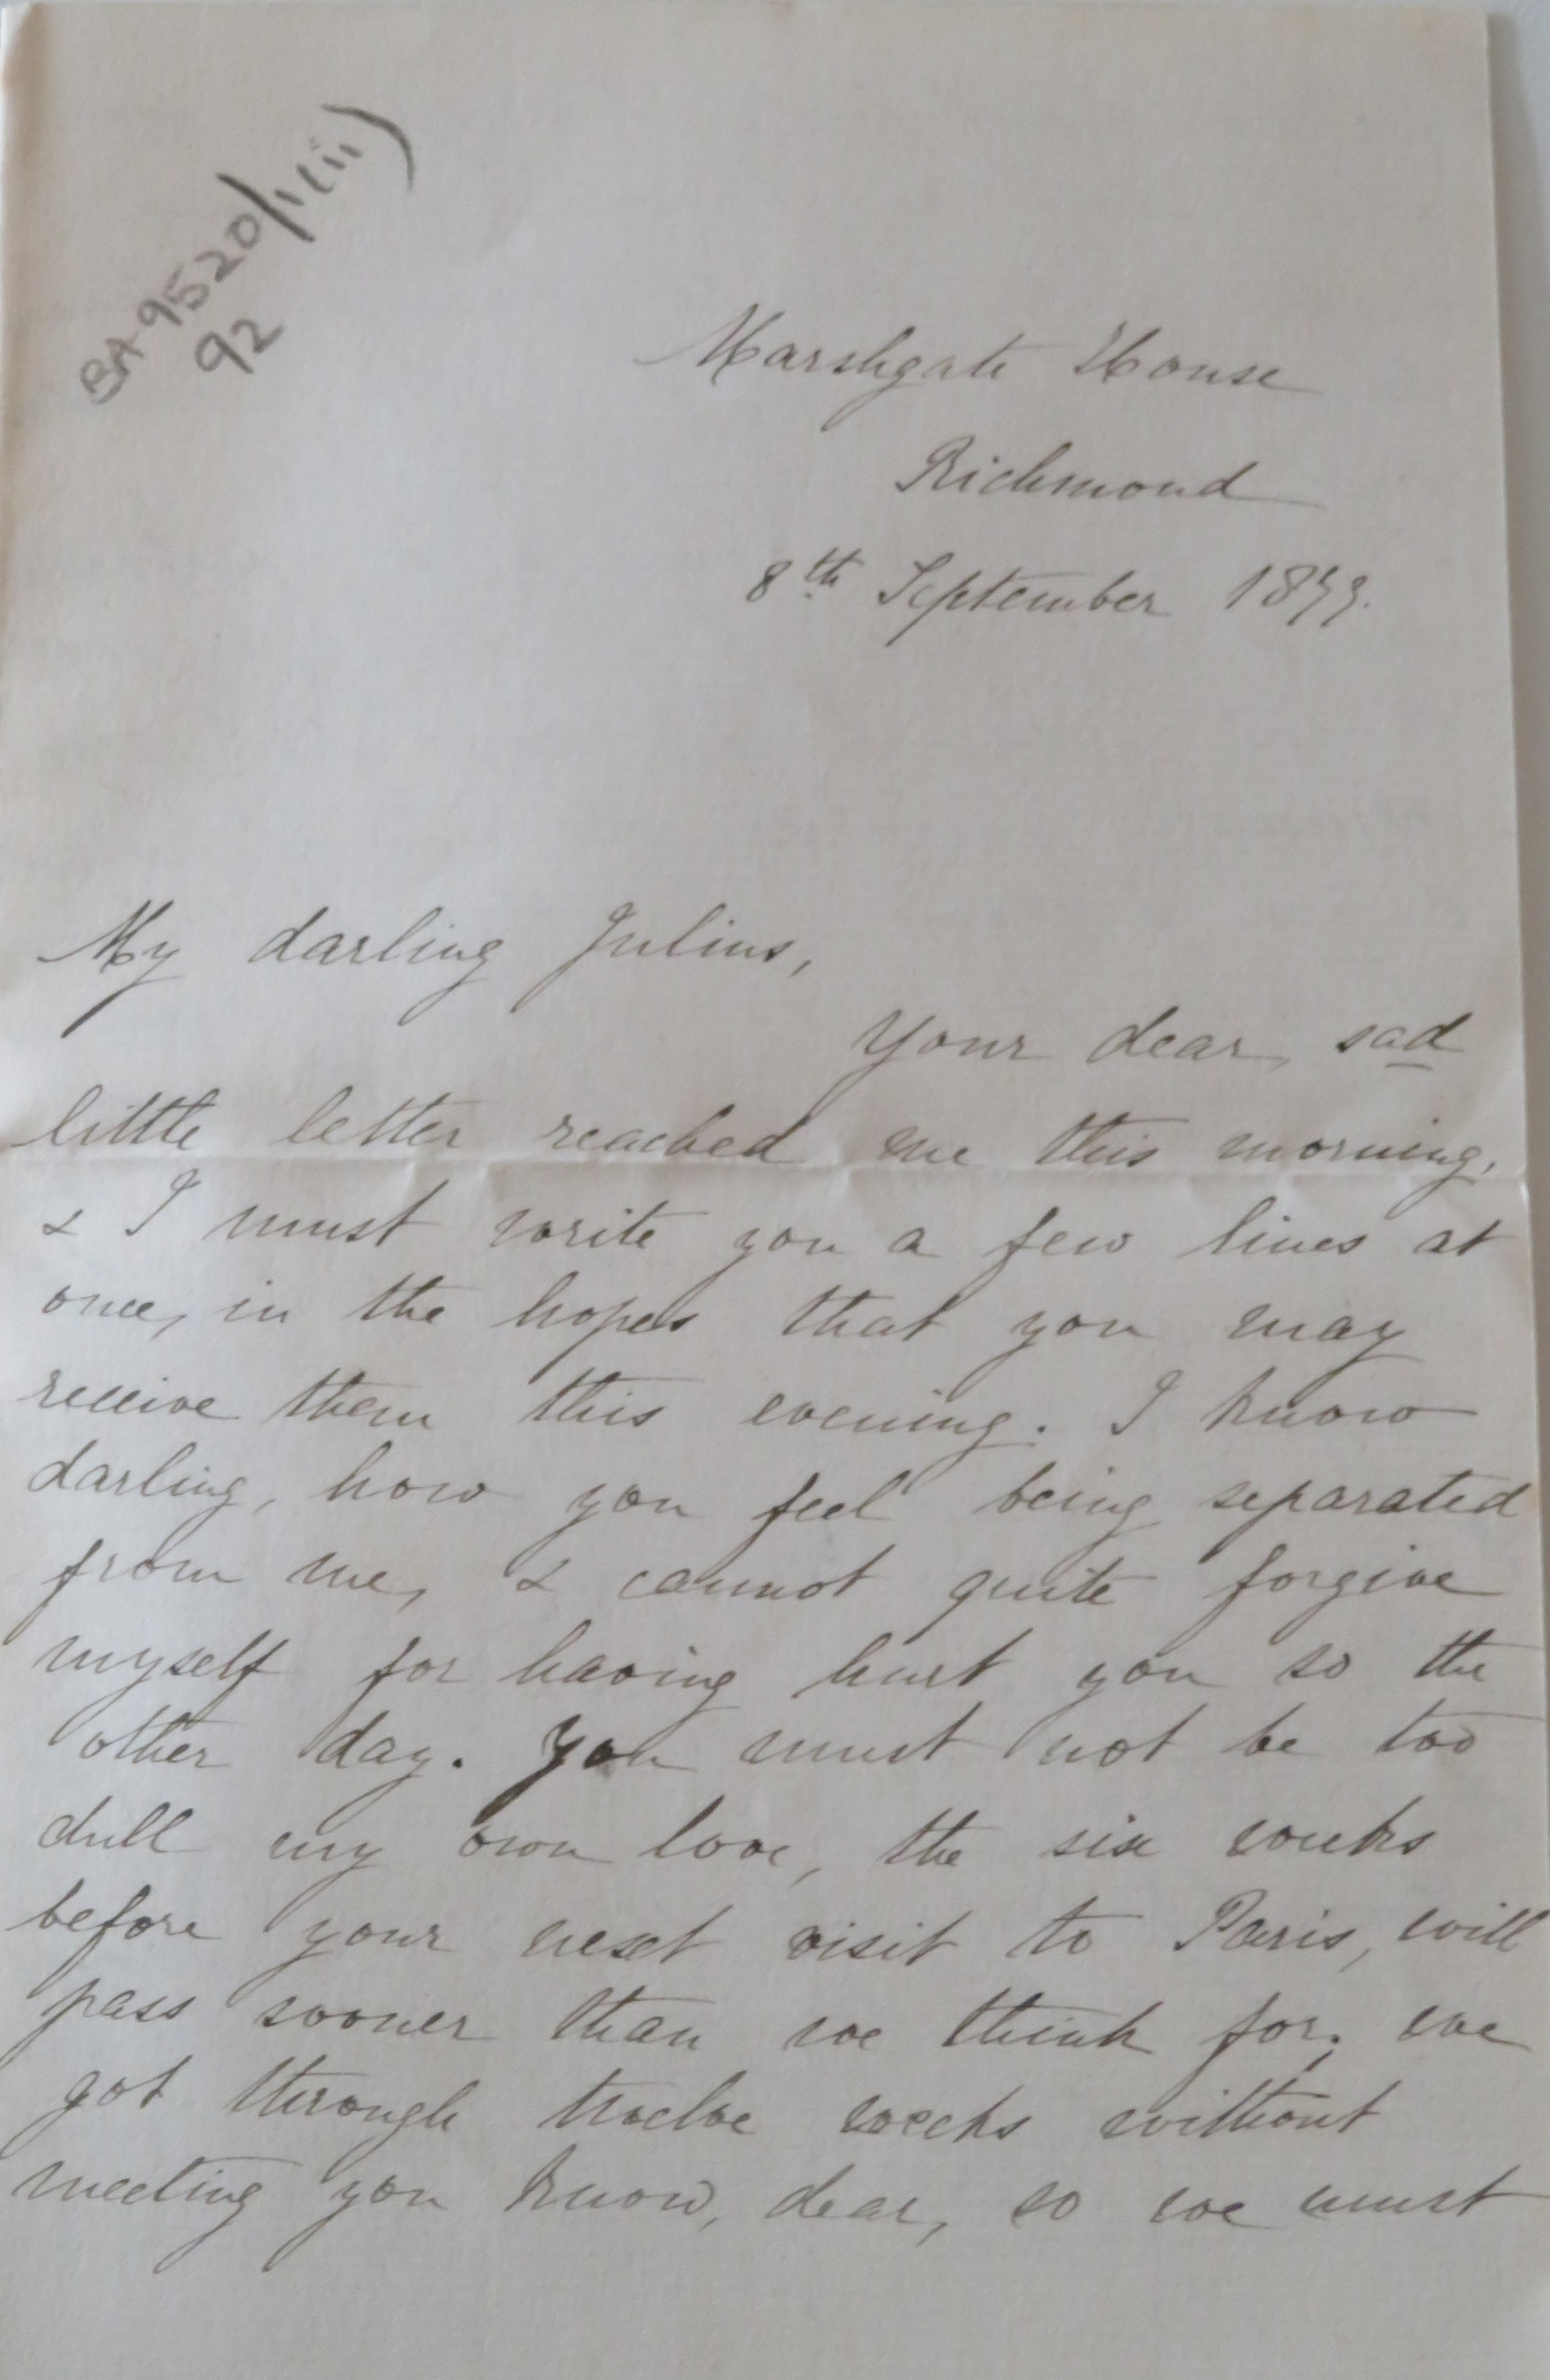 BA 9520/1(iii)
92
Marshgate House
Richmond
8th September 1879.
My darling Julius,
Your dear, sad
little letter reached me this morning,
& I must write you a few lines at
once, in the hopes that you may
receive them this evening. I know
darling, how you feel being separated
from me, & cannot quite forgive
myself for having hurt you so the
other day. You must not be too
dull my own love, the six weeks
before your next visit to Paris, will
pass sooner than we think for. we
got through twelve weeks without
meeting you know, dear, so we must